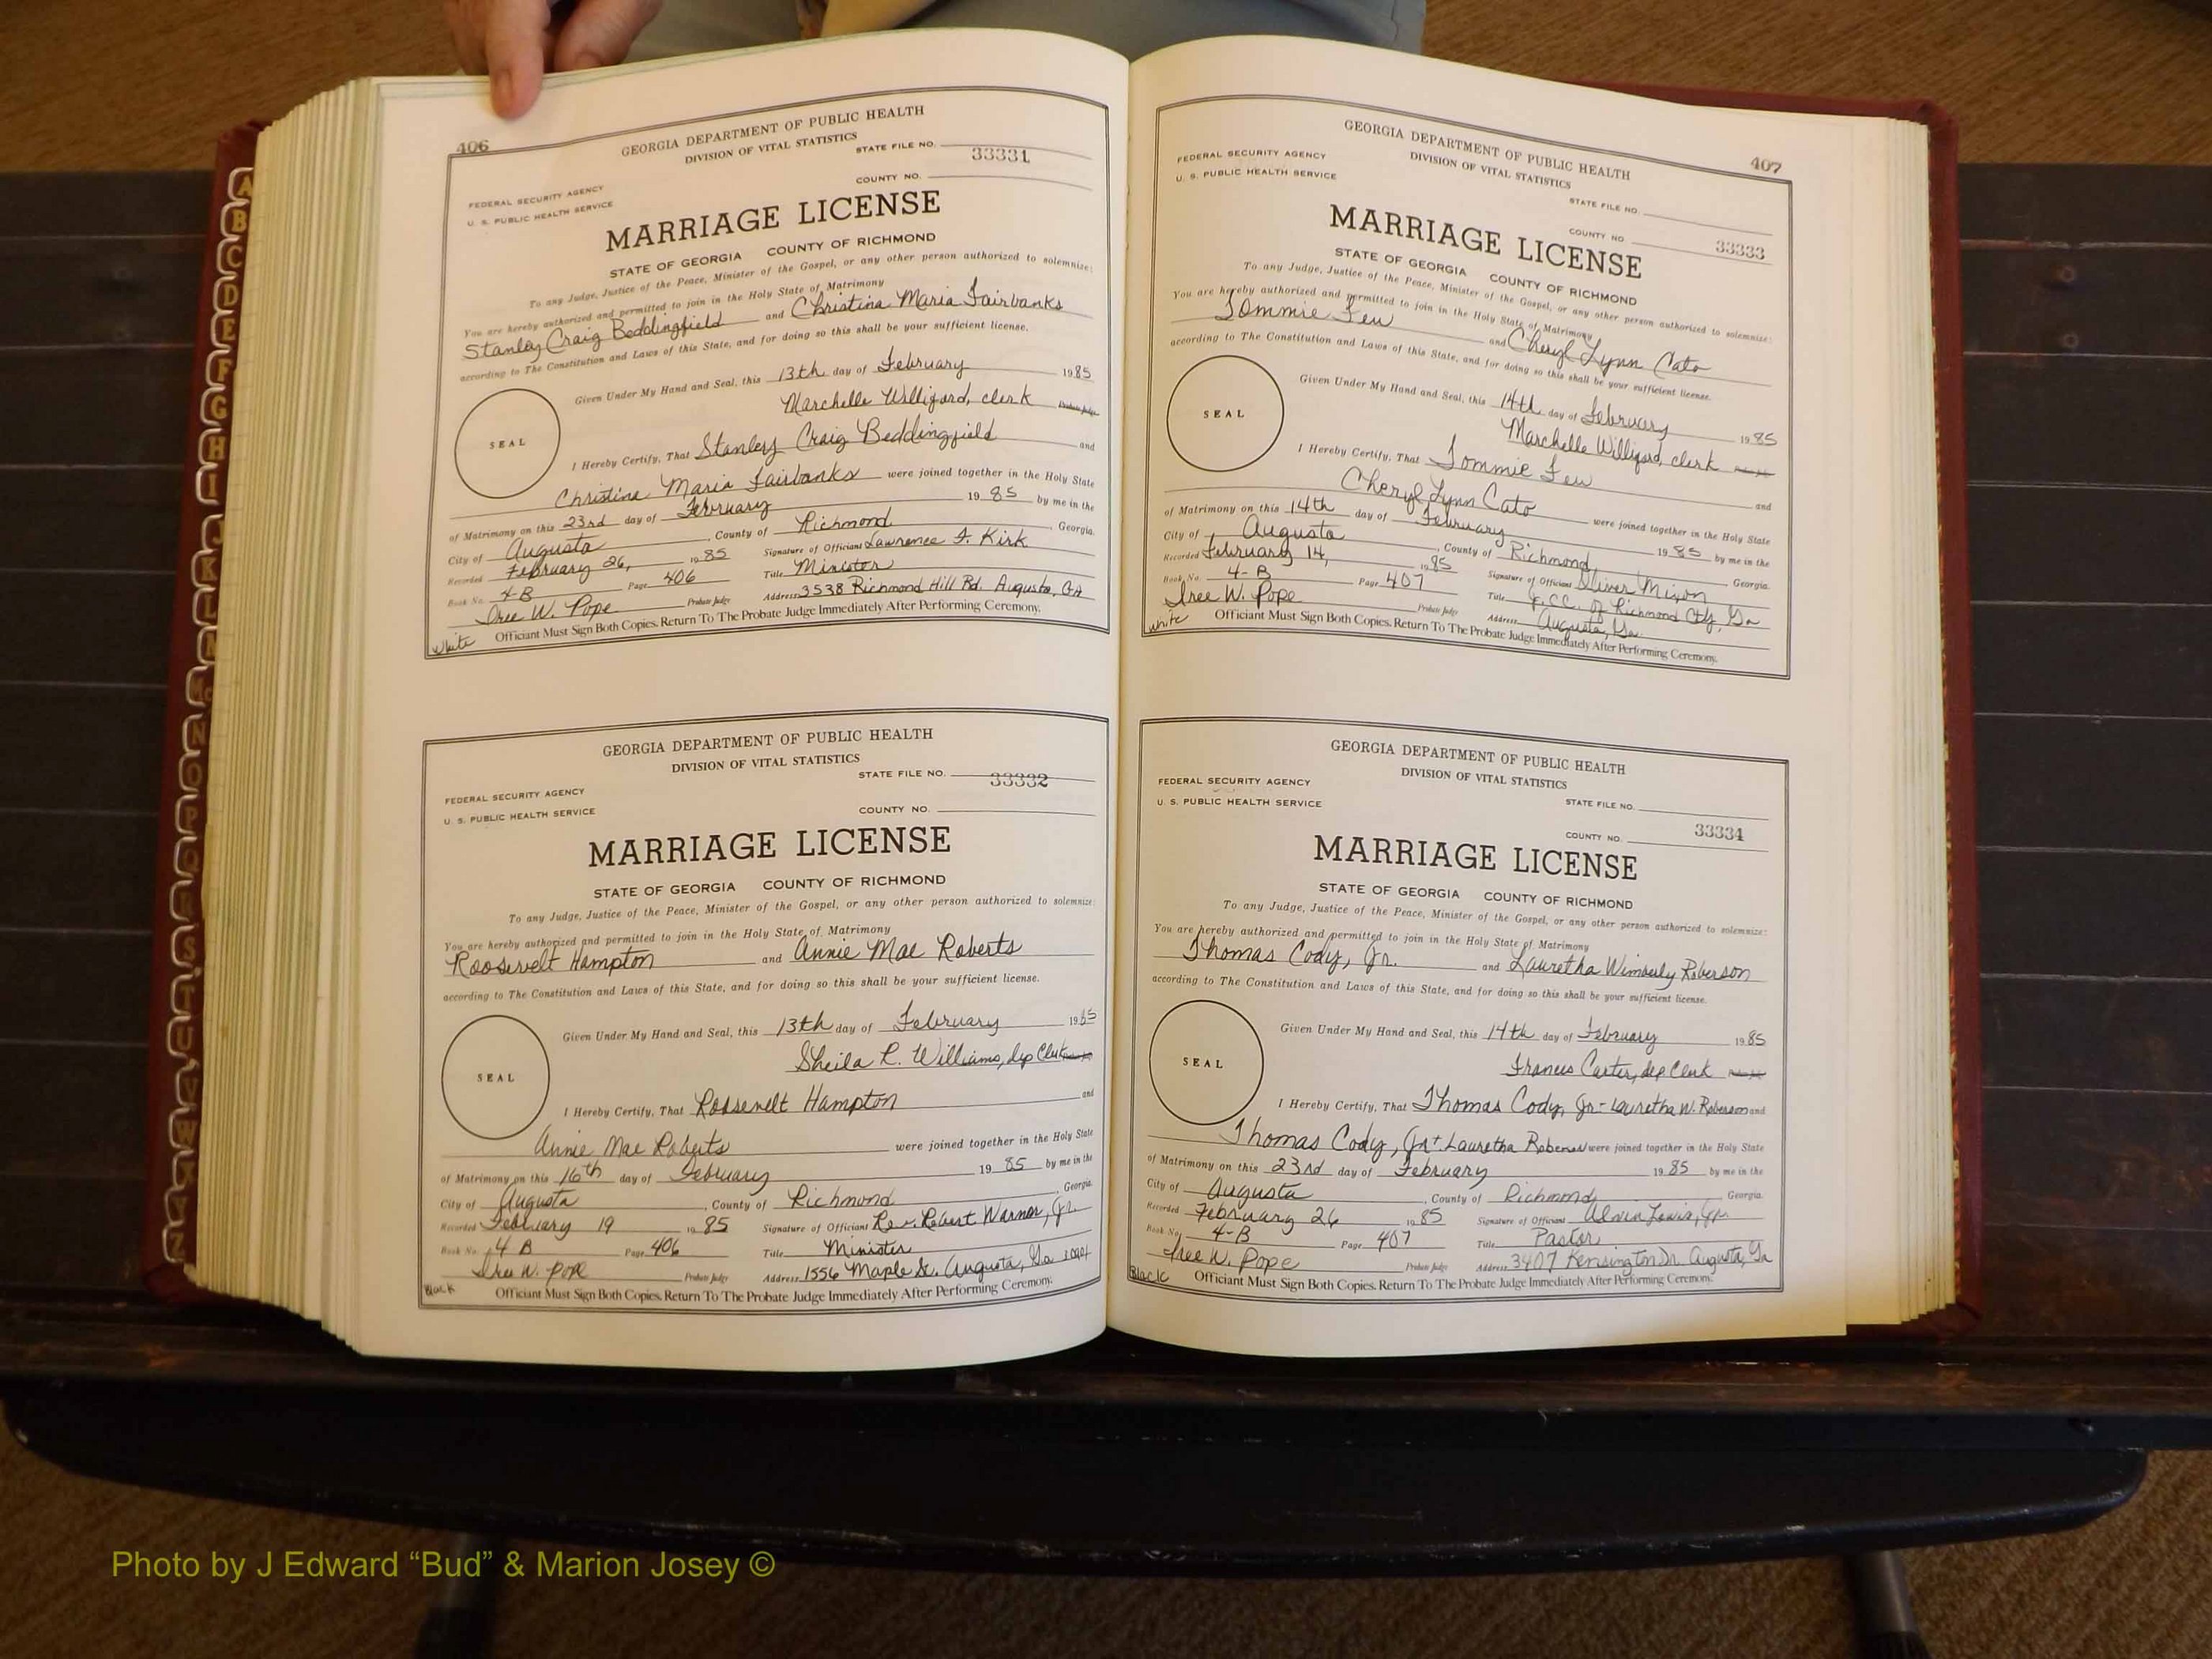 406
GEORGIA DEPARTMENT OF PUBLIC HEALTH
DIVISION OF VITAL STATISTICS
STATE FILE NO. 33331
FEDERAL SECURITY AGENCY
U. S. PUBLIC HEALTH SERVICE
COUNTY NO.
MARRIAGE LICENSE
STATE OF GEORGIA COUNTY OF RICHMOND
To any Judge, Justice of the Peace, Minister of the Gospel, or any other person authorized to solemnize:
You are hereby authorized and permitted to join in the Holy State of Matrimony
Stanley Craig Beddingfield and Christina Maria Fairbanks
according to The Constitution and Laws of this State, and for doing so this shall be your sufficient license.
Given Under My Hand and Seal, this 13th day of February 1985
Marchelle Willigard, clerk Probate Judge
SEAL
I Hereby Certify, That Stanley Craig Beddingfield and
Christina Maria Fairbanks were joined together in the Holy State
of Matrimony on this 23rd day of February 19 85 by me in the
City of Augusta, County of Richmond, Georgia.
Recorded February 26, 19 85 Signature of Officiant Lawrence F. Kirk
Book No. 4-B Page 406 Title Minister
Iree W. Pope Probate Judge Address 3538 Richmond Hill Rd. Augusta, GA
White Officiant Must Sign Both Copies. Return To The Probate Judge Immediately After Performing Ceremony.
GEORGIA DEPARTMENT OF PUBLIC HEALTH
DIVISION OF VITAL STATISTICS
STATE FILE NO. 33332
FEDERAL SECURITY AGENCY
U. S. PUBLIC HEALTH SERVICE
COUNTY NO.
MARRIAGE LICENSE
STATE OF GEORGIA COUNTY OF RICHMOND
To any Judge, Justice of the Peace, Minister of the Gospel, or any other person authorized to solemnize:
You are hereby authorized and permitted to join in the Holy State of Matrimony
Roosevelt Hampton and Annie Mae Roberts
according to The Constitution and Laws of this State, and for doing so this shall be your sufficient license.
Given Under My Hand and Seal, this 13th day of February 1985
Sheila R. Williams, dep Clerk
SEAL
I Hereby Certify, That Roosevelt Hampton and
Annie Mae Roberts were joined together in the Holy State
of Matrimony on this 16th day of February 19 85 by me in the
City of Augusta, County of Richmond, Georgia.
Recorded February 19 19 85 Signature of Officiant Rev. Robert Warner, Jr.
Book No. 4 B Page 406 Title Minister
Iree W. Pope Probate Judge Address 1556 Maple St. Augusta, Ga
Black Officiant Must Sign Both Copies. Return To The Probate Judge Immediately After Performing Ceremony.
407
GEORGIA DEPARTMENT OF PUBLIC HEALTH
DIVISION OF VITAL STATISTICS
FEDERAL SECURITY AGENCY
U. S. PUBLIC HEALTH SERVICE
STATE FILE NO.
COUNTY NO. 33333
MARRIAGE LICENSE
STATE OF GEORGIA COUNTY OF RICHMOND
To any Judge, Justice of the Peace, Minister of the Gospel, or any other person authorized to solemnize:
You are hereby authorized and permitted to join in the Holy State of Matrimony
Tommie Few and Cheryl Lynn Cato
according to The Constitution and Laws of this State, and for doing so this shall be your sufficient license.
Given Under My Hand and Seal, this 14th day of February 1985
Marchelle Willigard, clerk
SEAL
I Hereby Certify, That Tommie Few and
Cheryl Lynn Cato were joined together in the Holy State
of Matrimony on this 14th day of February 19 85 by me in the
City of Augusta, County of Richmond, Georgia.
Recorded February 14, 1985 Signature of Officiant Oliver Mixon
Book No. 4-B Page 407 Title J.CC. of Richmond Cty, Ga
Iree W. Pope Probate Judge Address Augusta, Ga.
White Officiant Must Sign Both Copies. Return To The Probate Judge Immediately After Performing Ceremony.
GEORGIA DEPARTMENT OF PUBLIC HEALTH
DIVISION OF VITAL STATISTICS
FEDERAL SECURITY AGENCY
U. S. PUBLIC HEALTH SERVICE
STATE FILE NO.
COUNTY NO. 33334
MARRIAGE LICENSE
STATE OF GEORGIA COUNTY OF RICHMOND
To any Judge, Justice of the Peace, Minister of the Gospel, or any other person authorized to solemnize:
You are hereby authorized and permitted to join in the Holy State of Matrimony
Thomas Cody, Jr. and Lauretha Wimberly Roberson
according to The Constitution and Laws of this State, and for doing so this shall be your sufficient license.
Given Under My Hand and Seal, this 14th day of February 1985
Frances Carter, dep Clerk
SEAL
I Hereby Certify, That Thomas Cody, Jr - Lauretha W. Roberson and
Thomas Cody, Jr + Lauretha Roberson were joined together in the Holy State
of Matrimony on this 23rd day of February 19 85 by me in the
City of Augusta, County of Richmond, Georgia.
Recorded February 26 1985 Signature of Officiant Alvin Lewis, Jr.
Book No. 4-B Page 407 Title Pastor
Iree W. Pope Probate Judge Address 3407 Kensington Dr. Augusta, Ga
Black Officiant Must Sign Both Copies. Return To The Probate Judge Immediately After Performing Ceremony.
A
B
C
D
E
F
G
H
I
J
K
L
M
Mc
N
O
P
Q
R
S
T
U
V
W
Photo by J Edward “Bud” & Marion Josey ©